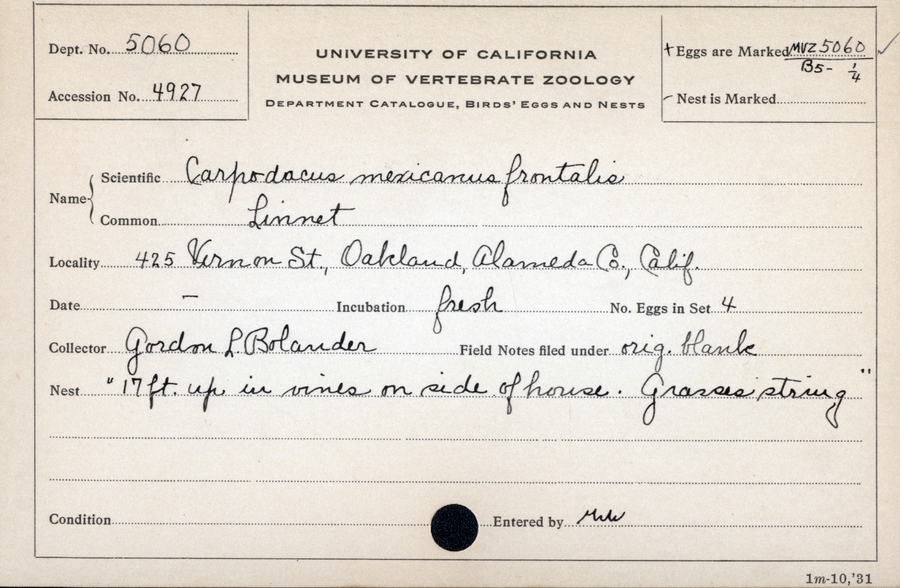 Dept. No. 5060
Accession No. 4927
UNIVERSITY OF CALIFORNIA
MUSEUM OF VERTEBRATE ZOOLOGY
DEPARTMENT CATALOGUE, BIRDS' EGGS AND NESTS
+ Eggs are Marked MVZ 5060 ✓
B5- 1/4
- Nest is Marked
Name { Scientific Carpodacus mexicanus frontalis
Common Linnet
Locality 425 Vernon St., Oakland, Alameda Co., Calif.
Date — Incubation fresh No. Eggs in Set 4
Collector Gordon L. Bolander Field Notes filed under orig. blank
Nest "17 ft. up in vines on side of house. Grasses string"
Condition Entered by
1m-10,'31